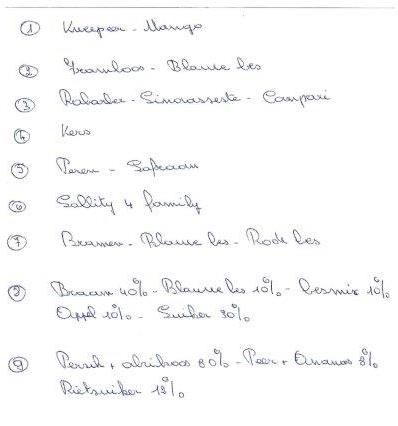 ① Kweepeer - Mango
② Framboos - Blauwe bes
③ Rabarber - Sinaasseste - Campari
④ Kers
⑤ Peren - Safraan
⑥ Sallity 4 family
⑦ Bramen - Blauwe bes - Rode bes
⑧ Braam 40% - Blauwe bes 10% - besmix 10%
Appel 10% - Suiker 30%
⑨ Perzik + abrikoos 80% - Peer + Ananas 8%
Rietsuiker 12%